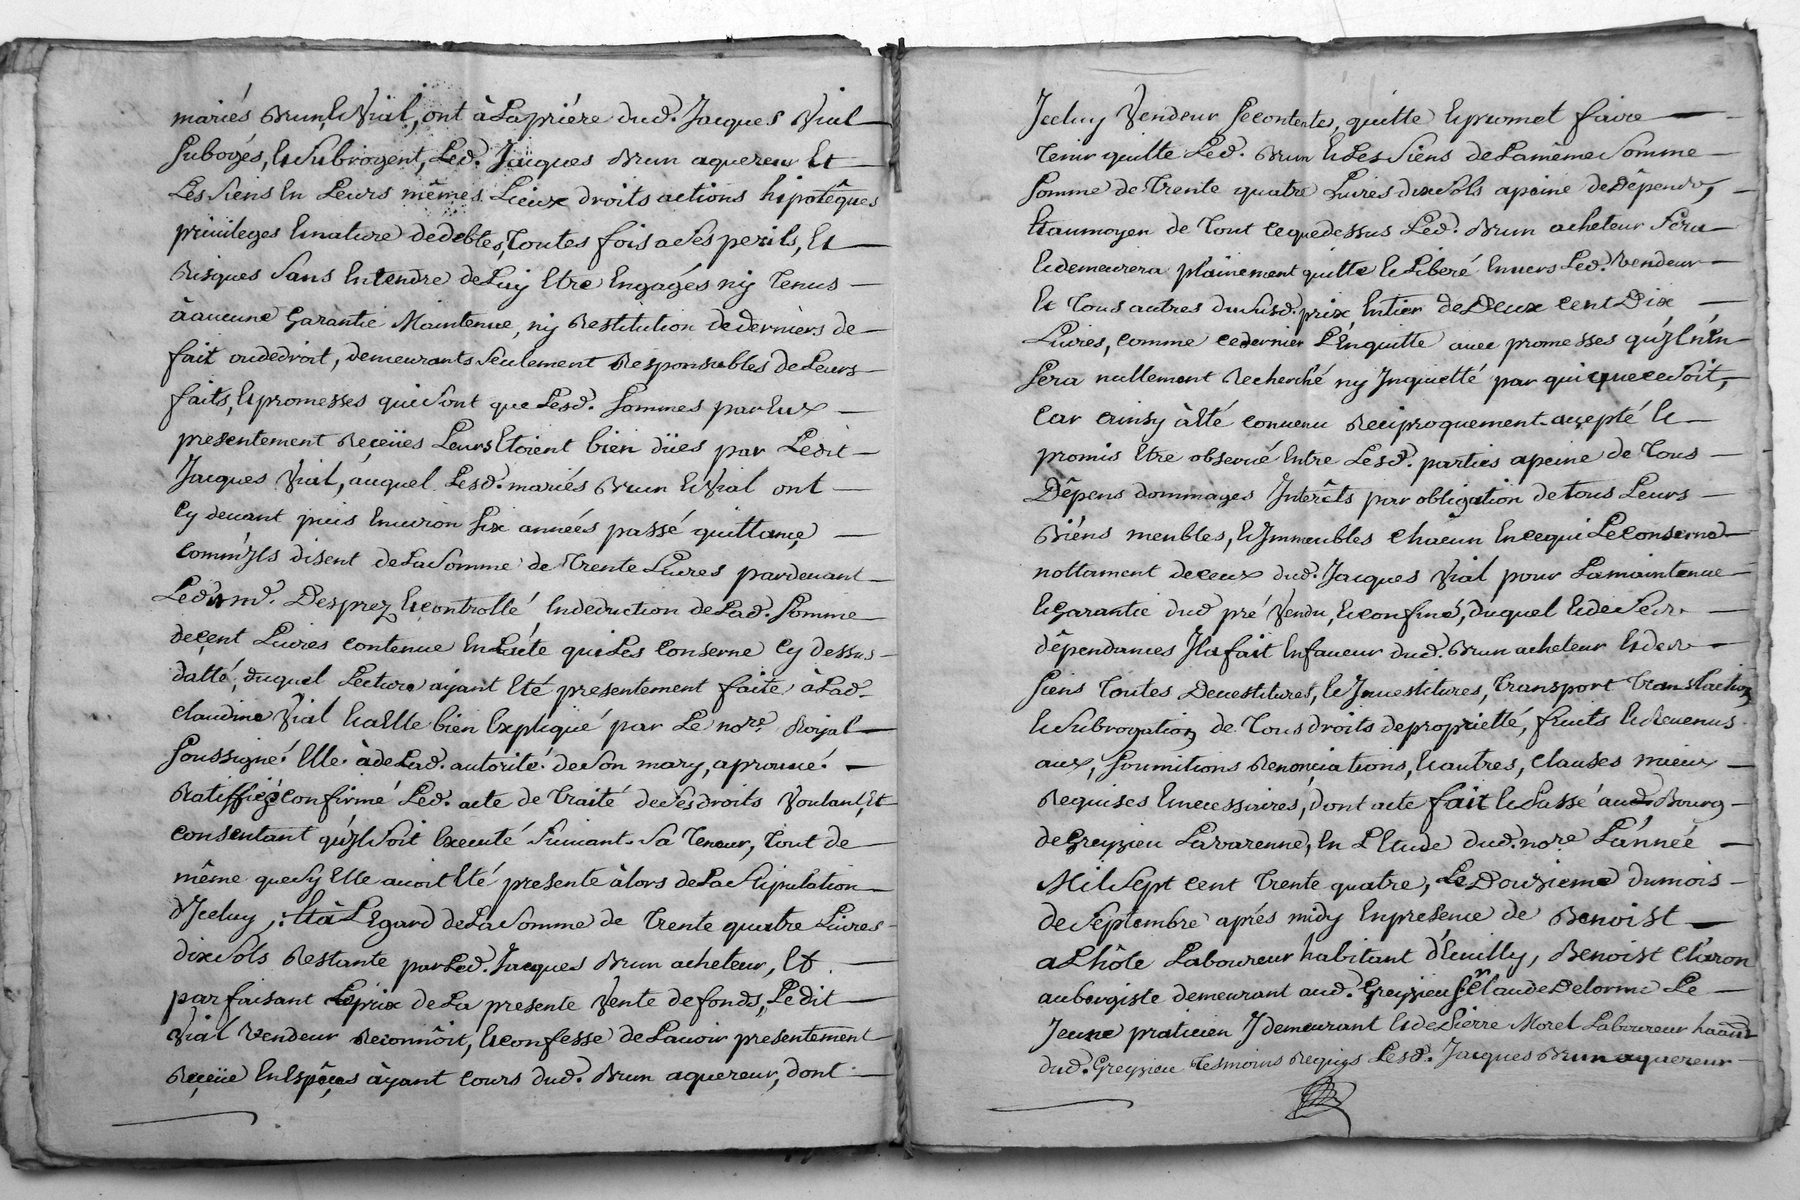 mariés Brun, et Vial, ont à La priére dud. Jacques Vial
Subogés, et Subrogent, Led. Jacques Brun aquereur Et
Les Siens En Leurs mêmes Lieux droits actions hipotêques
privileges Et nature de debtes, Toutes fois a Ses perils, Et
Risques Sans Entendre de Luy Etre Engagés ny Tenus
à aucune Garantie Maintenue, ny Restitution de derniers de
fait ou de droit, demeurants Seulement Responsables de Leurs
faits, Et promesses qui Sont que Lesd. Sommes par Eux
presentement Reçeües Leurs Etoient bien dües par Ledit
Jacques Vial, auquel Lesd. mariés Brun Et Vial ont
Cy devant puis Environ Six années passé quittançe
comm'Ils disent de La Somme de Trente Livres pardevant
Led. md. Desprez Et controllé, En deduction de Lad. Somme
de çent Livres contenue En L'acte qui Les Conserne Cy dessus
datté, duquel Lecture ayant Eté presentement faite à Lad.
Claudine Vial Et a Elle bien Expliqué par Le nore. Royal
Soussigné. Elle à de Lad. autorité de Son mary, aprouvé.
Ratiffié, Confirmé Led. acte de Traité de Ses droits Voulant, Et
consentant qu'Il Soit Executé Suivant Sa Teneur, Tout de
même que Sy Elle avoit Eté presente àlors de La Stipulation
d'Jceluy, : Et à L'Egard de La Somme de Trente quatre Livres
dix Sols Restante par Led. Jacques Brun acheteur, Et
parfaisant Le prix de La presente Vente de fonds, Ledit
Vial vendeur Reconnôit, Et confesse de L'avoir presentement
Reçeüe En Espêces àyant Cours dud. Brun aquereur, dont
Jceluy Vendeur Se contente, quitte Et promet faire
Tenir quitte Led. Brun Et Les Siens de La même Somme
Somme de Trente quatre Livres dix Sols apeine de Dêpends,
Et au moyen de Tout ce que dessus Led. Brun acheteur Sera
Et demeurera plainement quitte Et Liberé Envers Led. vendeur
Et Tous autres du Susd. prix Entier de Deux Cent Dix
Livres, comme ce dernier L'Enquitte avec promesses qu'Il n'En
Sera nullement Recherché ny Jnquietté par qui que ce Soit,
Car ainsy à Eté convenu Reciproquement açcepté Et
promis Etre observé Entre Lesd. parties apeine de Tous
Dêpens dommages Jnterêts par obligation de tous Leurs
Biéns meubles, Et Jmmeubles Chacun En ce qui Le Conserne
nottament de ceux dud. Jacques Vial pour La maintenue
Et Garantie dud pré Vendu, Et confiné, duquel Et de Ses
dêpendances Jl a fait En faveur dud. Brun acheteur Et des
Siens Toutes Devestitures, Et Jnvestitures, Transport Translation,
Et Subrogation, de Tous droits de proprietté, fruits Et Revenus
aux, Soumitions Renonçiations, Et autres, Clauses mieux
Requises Et necessaires, dont acte fait Et Passé aud. Bourg
de Greyzieu Lavarenne, En L'Etude dud. nore L'année
Mil Sept cent Trente quatre, Le Douzieme du mois
de Septembre aprés midy En presence de Benoist
a Lhôte Laboureur habitant d'Eveilly, Benoist Charon
aubergiste demeurant aud. Greyzieu Sr. Claude Delorme Le
Jeune praticien Y demeurant Et de Pierre Morel Laboureur
dud. Greyzieu Tesmoins Requis Lesd. Jacques Brun aquereur